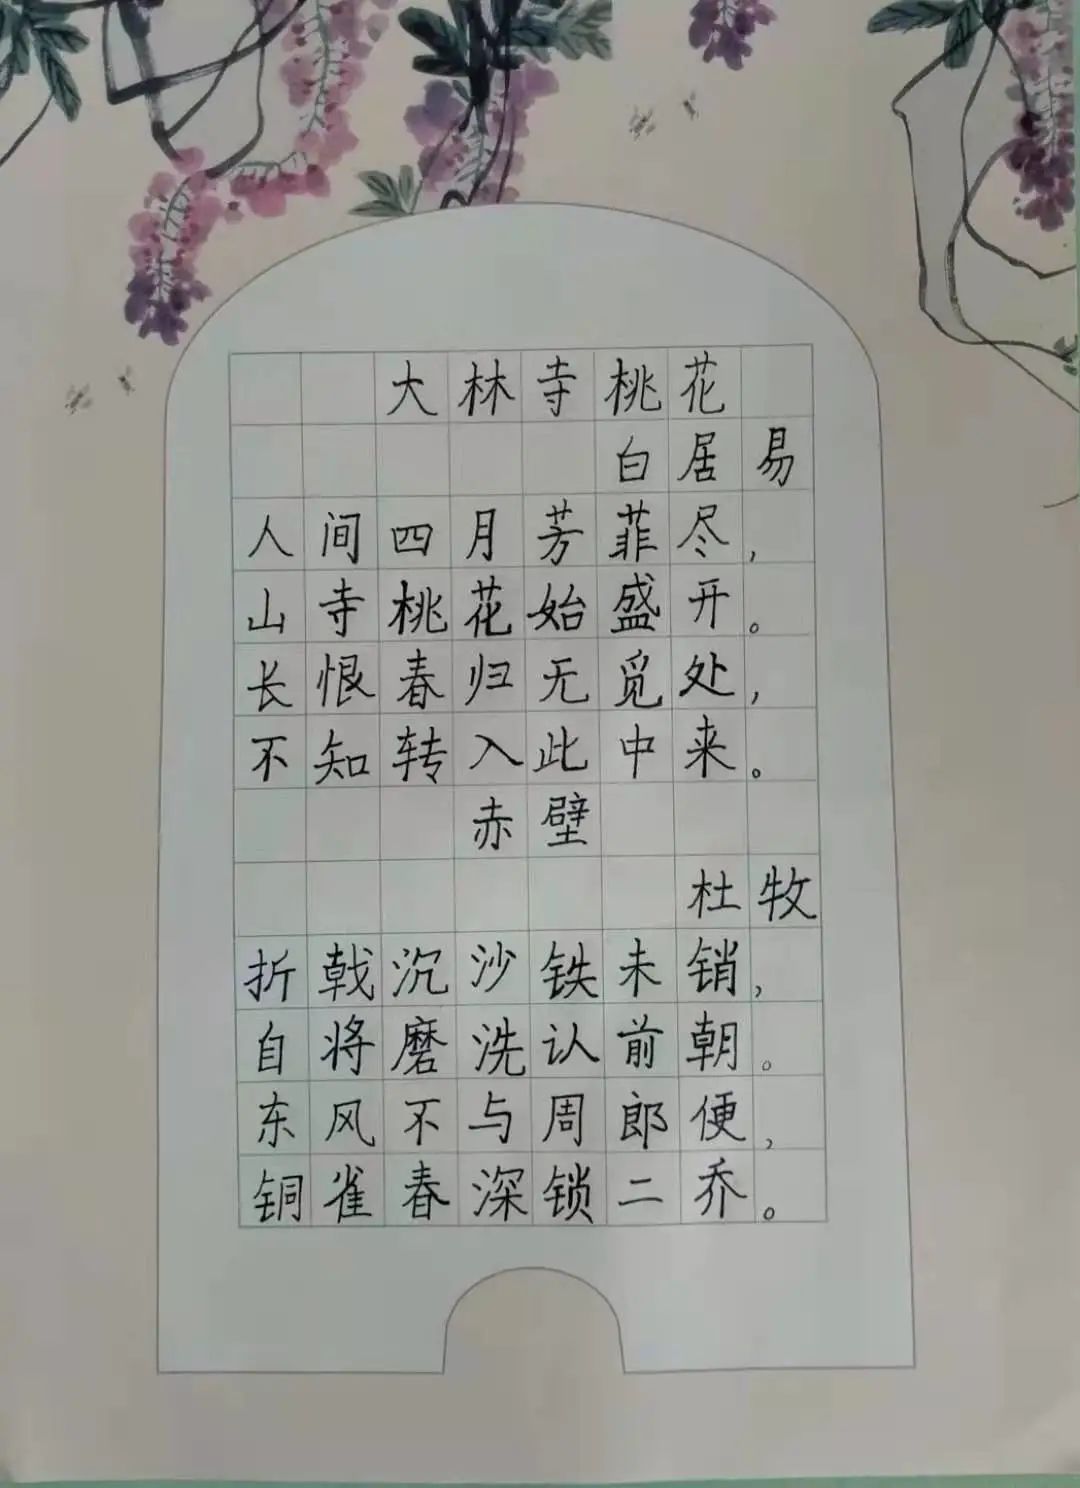 大林寺桃花
白居易
人间四月芳菲尽，
山寺桃花始盛开。
长恨春归无觅处，
不知转入此中来。
赤壁
杜牧
折戟沉沙铁未销，
自将磨洗认前朝。
东风不与周郎便，
铜雀春深锁二乔。